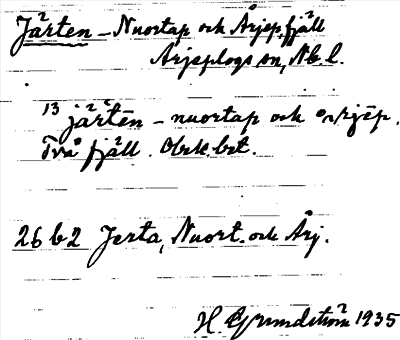 Järten - Nuortap och Årjep fjäll
Arjeplogs sn, Nb l.
13 järtēn - nuortap och årjēp.
Två fjäll. Obek. bet.
26 b 2 Jerta, Nuort. och Årj.
H. Grundström 1935